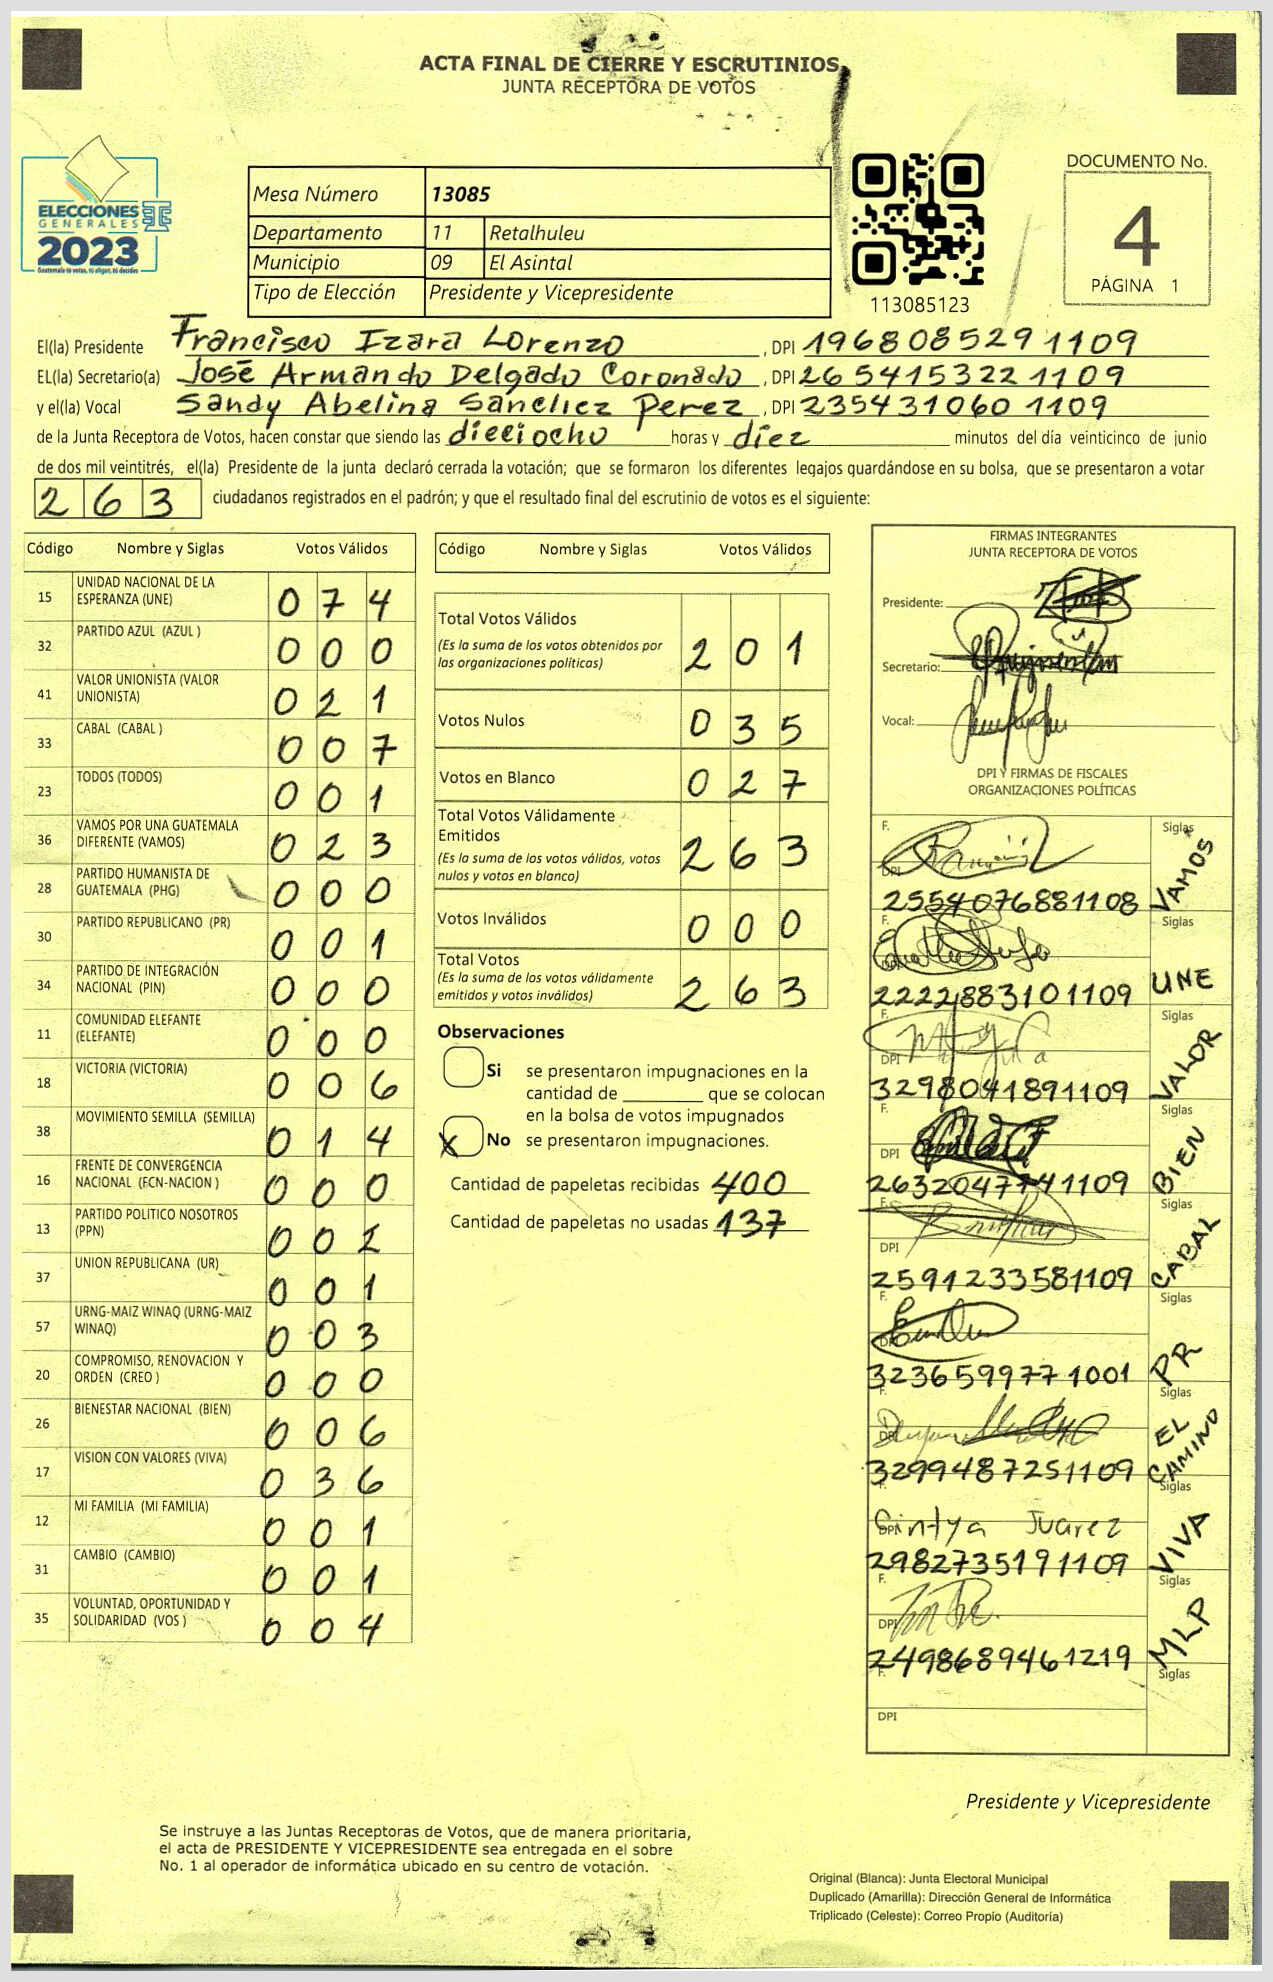 ACTA FINAL DE CIERRE Y ESCRUTINIOS
JUNTA RECEPTORA DE VOTOS
ELECCIONES
GENERALES
2023
Guatemala tú votas, tú eliges, tú decides
Mesa Número 13085
Departamento 11 Retalhuleu
Municipio 09 El Asintal
Tipo de Elección Presidente y Vicepresidente
113085123
DOCUMENTO No.
4
PÁGINA 1
El(la) Presidente Francisco Izara Lorenzo, DPI 1968085291109
EL(la) Secretario(a) José Armando Delgado Coronado, DPI 2654153221109
y el(la) Vocal Sandy Abelina Sanchez Perez, DPI 2354310601109
de la Junta Receptora de Votos, hacen constar que siendo las dieciocho horas y diez minutos del día veinticinco de junio
de dos mil veintitrés, el(la) Presidente de la junta declaró cerrada la votación; que se formaron los diferentes legajos guardándose en su bolsa, que se presentaron a votar
263 ciudadanos registrados en el padrón; y que el resultado final del escrutinio de votos es el siguiente:
Código Nombre y Siglas Votos Válidos
15 UNIDAD NACIONAL DE LA ESPERANZA (UNE) 074
32 PARTIDO AZUL (AZUL ) 000
41 VALOR UNIONISTA (VALOR UNIONISTA) 021
33 CABAL (CABAL ) 007
23 TODOS (TODOS) 001
36 VAMOS POR UNA GUATEMALA DIFERENTE (VAMOS) 023
28 PARTIDO HUMANISTA DE GUATEMALA (PHG) 000
30 PARTIDO REPUBLICANO (PR) 001
34 PARTIDO DE INTEGRACIÓN NACIONAL (PIN) 000
11 COMUNIDAD ELEFANTE (ELEFANTE) 000
18 VICTORIA (VICTORIA) 006
38 MOVIMIENTO SEMILLA (SEMILLA) 014
16 FRENTE DE CONVERGENCIA NACIONAL (FCN-NACION ) 000
13 PARTIDO POLITICO NOSOTROS (PPN) 002
37 UNION REPUBLICANA (UR) 001
57 URNG-MAIZ WINAQ (URNG-MAIZ WINAQ) 003
20 COMPROMISO, RENOVACION Y ORDEN (CREO ) 000
26 BIENESTAR NACIONAL (BIEN) 006
17 VISION CON VALORES (VIVA) 036
12 MI FAMILIA (MI FAMILIA) 001
31 CAMBIO (CAMBIO) 001
35 VOLUNTAD, OPORTUNIDAD Y SOLIDARIDAD (VOS ) 004
Código Nombre y Siglas Votos Válidos
Total Votos Válidos 201
(Es la suma de los votos obtenidos por
las organizaciones políticas)
Votos Nulos 035
Votos en Blanco 027
Total Votos Válidamente
Emitidos 263
(Es la suma de los votos válidos, votos
nulos y votos en blanco)
Votos Inválidos 000
Total Votos 263
(Es la suma de los votos válidamente
emitidos y votos inválidos)
Observaciones
Si se presentaron impugnaciones en la
cantidad de ________ que se colocan
en la bolsa de votos impugnados
X No se presentaron impugnaciones.
Cantidad de papeletas recibidas 400
Cantidad de papeletas no usadas 137
FIRMAS INTEGRANTES
JUNTA RECEPTORA DE VOTOS
Presidente:
Secretario:
Vocal:
DPI Y FIRMAS DE FISCALES
ORGANIZACIONES POLÍTICAS
F. Siglas
DPI 2554076881108 VAMOS
F. Siglas
2222883101109 UNE
F. Siglas
DPI 3298041891109 VALOR
F. Siglas
DPI 2632047741109 BIEN
F. Siglas
DPI 2591233581109 CABAL
F. Siglas
DPI 3236599771001 PR
F. Siglas
DPI 3299487251109 EL CAMINO
F. Siglas
DPI Sintya Juarez
2982735191109 VIVA
F. Siglas
DPI 2498689461219 MLP
F. Siglas
DPI
Presidente y Vicepresidente
Se instruye a las Juntas Receptoras de Votos, que de manera prioritaria,
el acta de PRESIDENTE Y VICEPRESIDENTE sea entregada en el sobre
No. 1 al operador de informática ubicado en su centro de votación.
Original (Blanca): Junta Electoral Municipal
Duplicado (Amarilla): Dirección General de Informática
Triplicado (Celeste): Correo Propio (Auditoría)